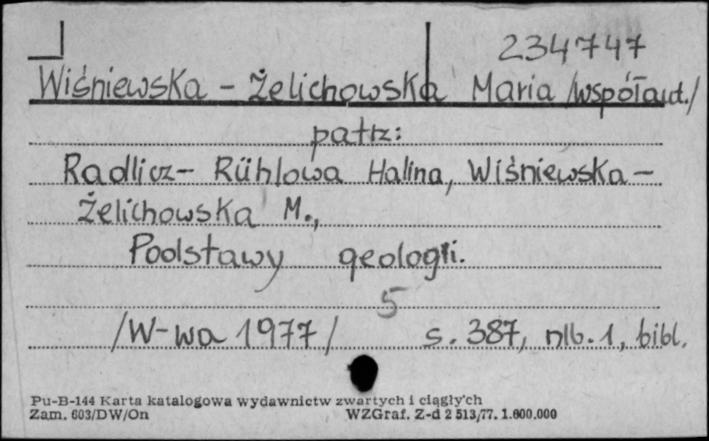 234747
Wiśniewska - Żelichowska Maria /współaut./
patrz:
Radlicz- Rühlowa Halina, Wiśniewska-
Żelichowska M.,
Podstawy geologii.
5
/W-wa 1977/ s. 387, nlb. 1, bibl.
Pu-B-144 Karta katalogowa wydawnictw zwartych i ciągłych
Zam. 603/DW/On WZGraf. Z-d 2 513/77. 1.600.000